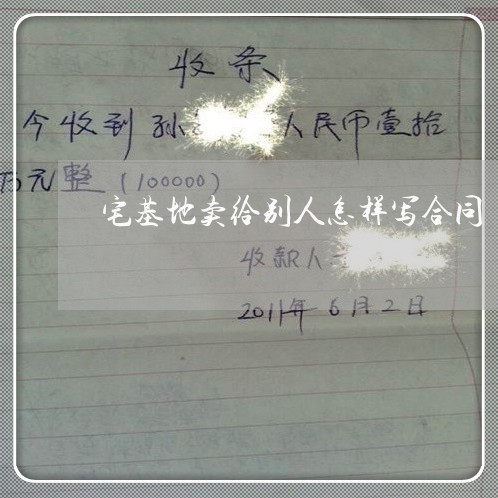 收条
今收到孙 人民币壹拾
万元整（100000）
宅基地卖给别人怎样写合同
收款人
2011年6月2日